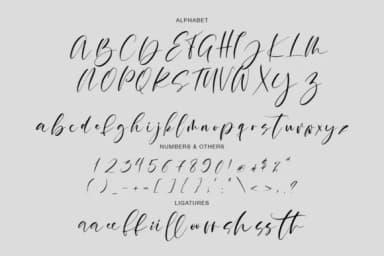 ALPHABET
ABCDEFGHIJKLM
NOPQRSTUVWXYZ
abcdefghijklmnopqrstuvwxyz
NUMBERS & OTHERS
1234567890!@#$%
( ) _ - + = [ ] { } ' : " \ < > , . ?
LIGATURES
aaeeffiilloorrshsstth